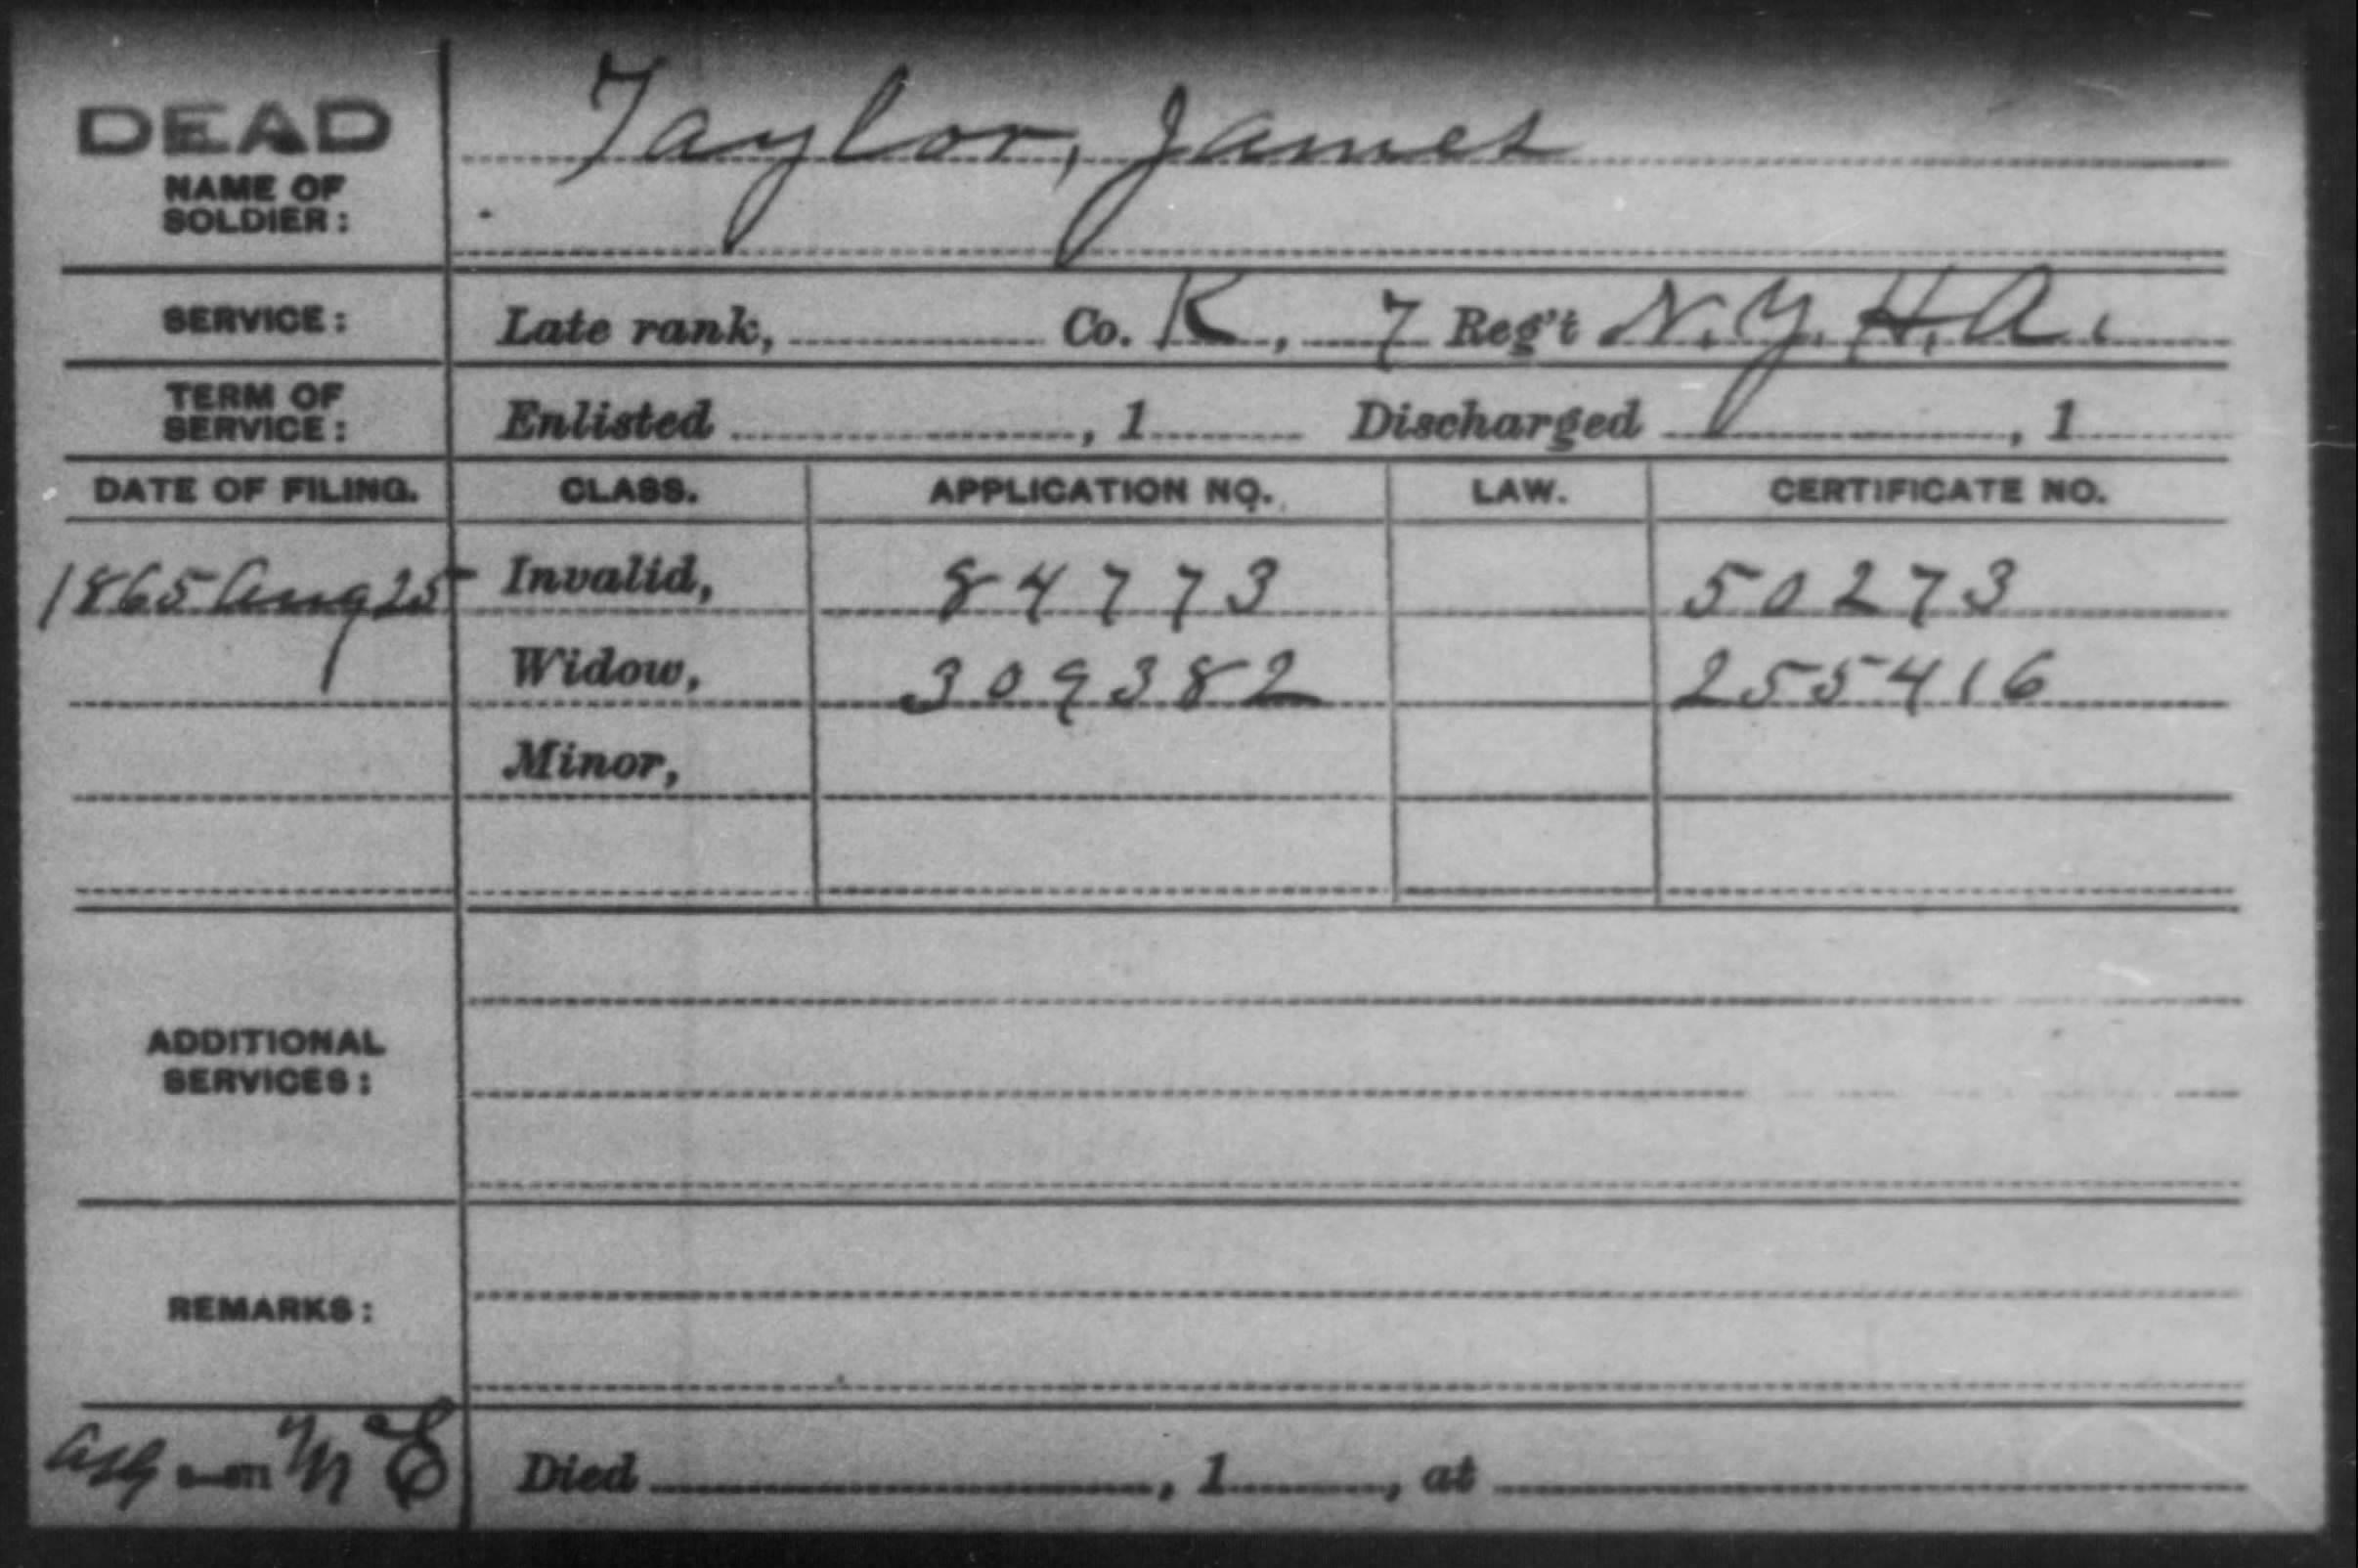 DEAD
Taylor, James
NAME OF
SOLDIER:
SERVICE: Late rank, Co. K, 7 Reg't N.Y.H.A.
TERM OF
SERVICE: Enlisted , 1 Discharged , 1
DATE OF FILING. CLASS. APPLICATION NO. LAW. CERTIFICATE NO.
1865 Aug 25 Invalid, 84773 50273
Widow, 309382 255416
Minor,
ADDITIONAL
SERVICES:
REMARKS:
Died , 1 , at